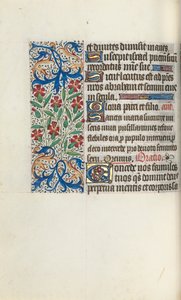 et divites dimisit inanes
Suscepit israel puerum suum
recordatus mie sue
Sicut locutus est ad patres
nros abraham et semini eius
in secula
Gloria patri et filio ant
Sancta maria succurre mi
seris iuva pusillanimes refove
flebiles ora pro populo interveni p
clero intercede pro devoto femineo
sexu Oremus Oratio
Concede nos famulos
tuos qs domine deus
perpetua mentis et corporis sa